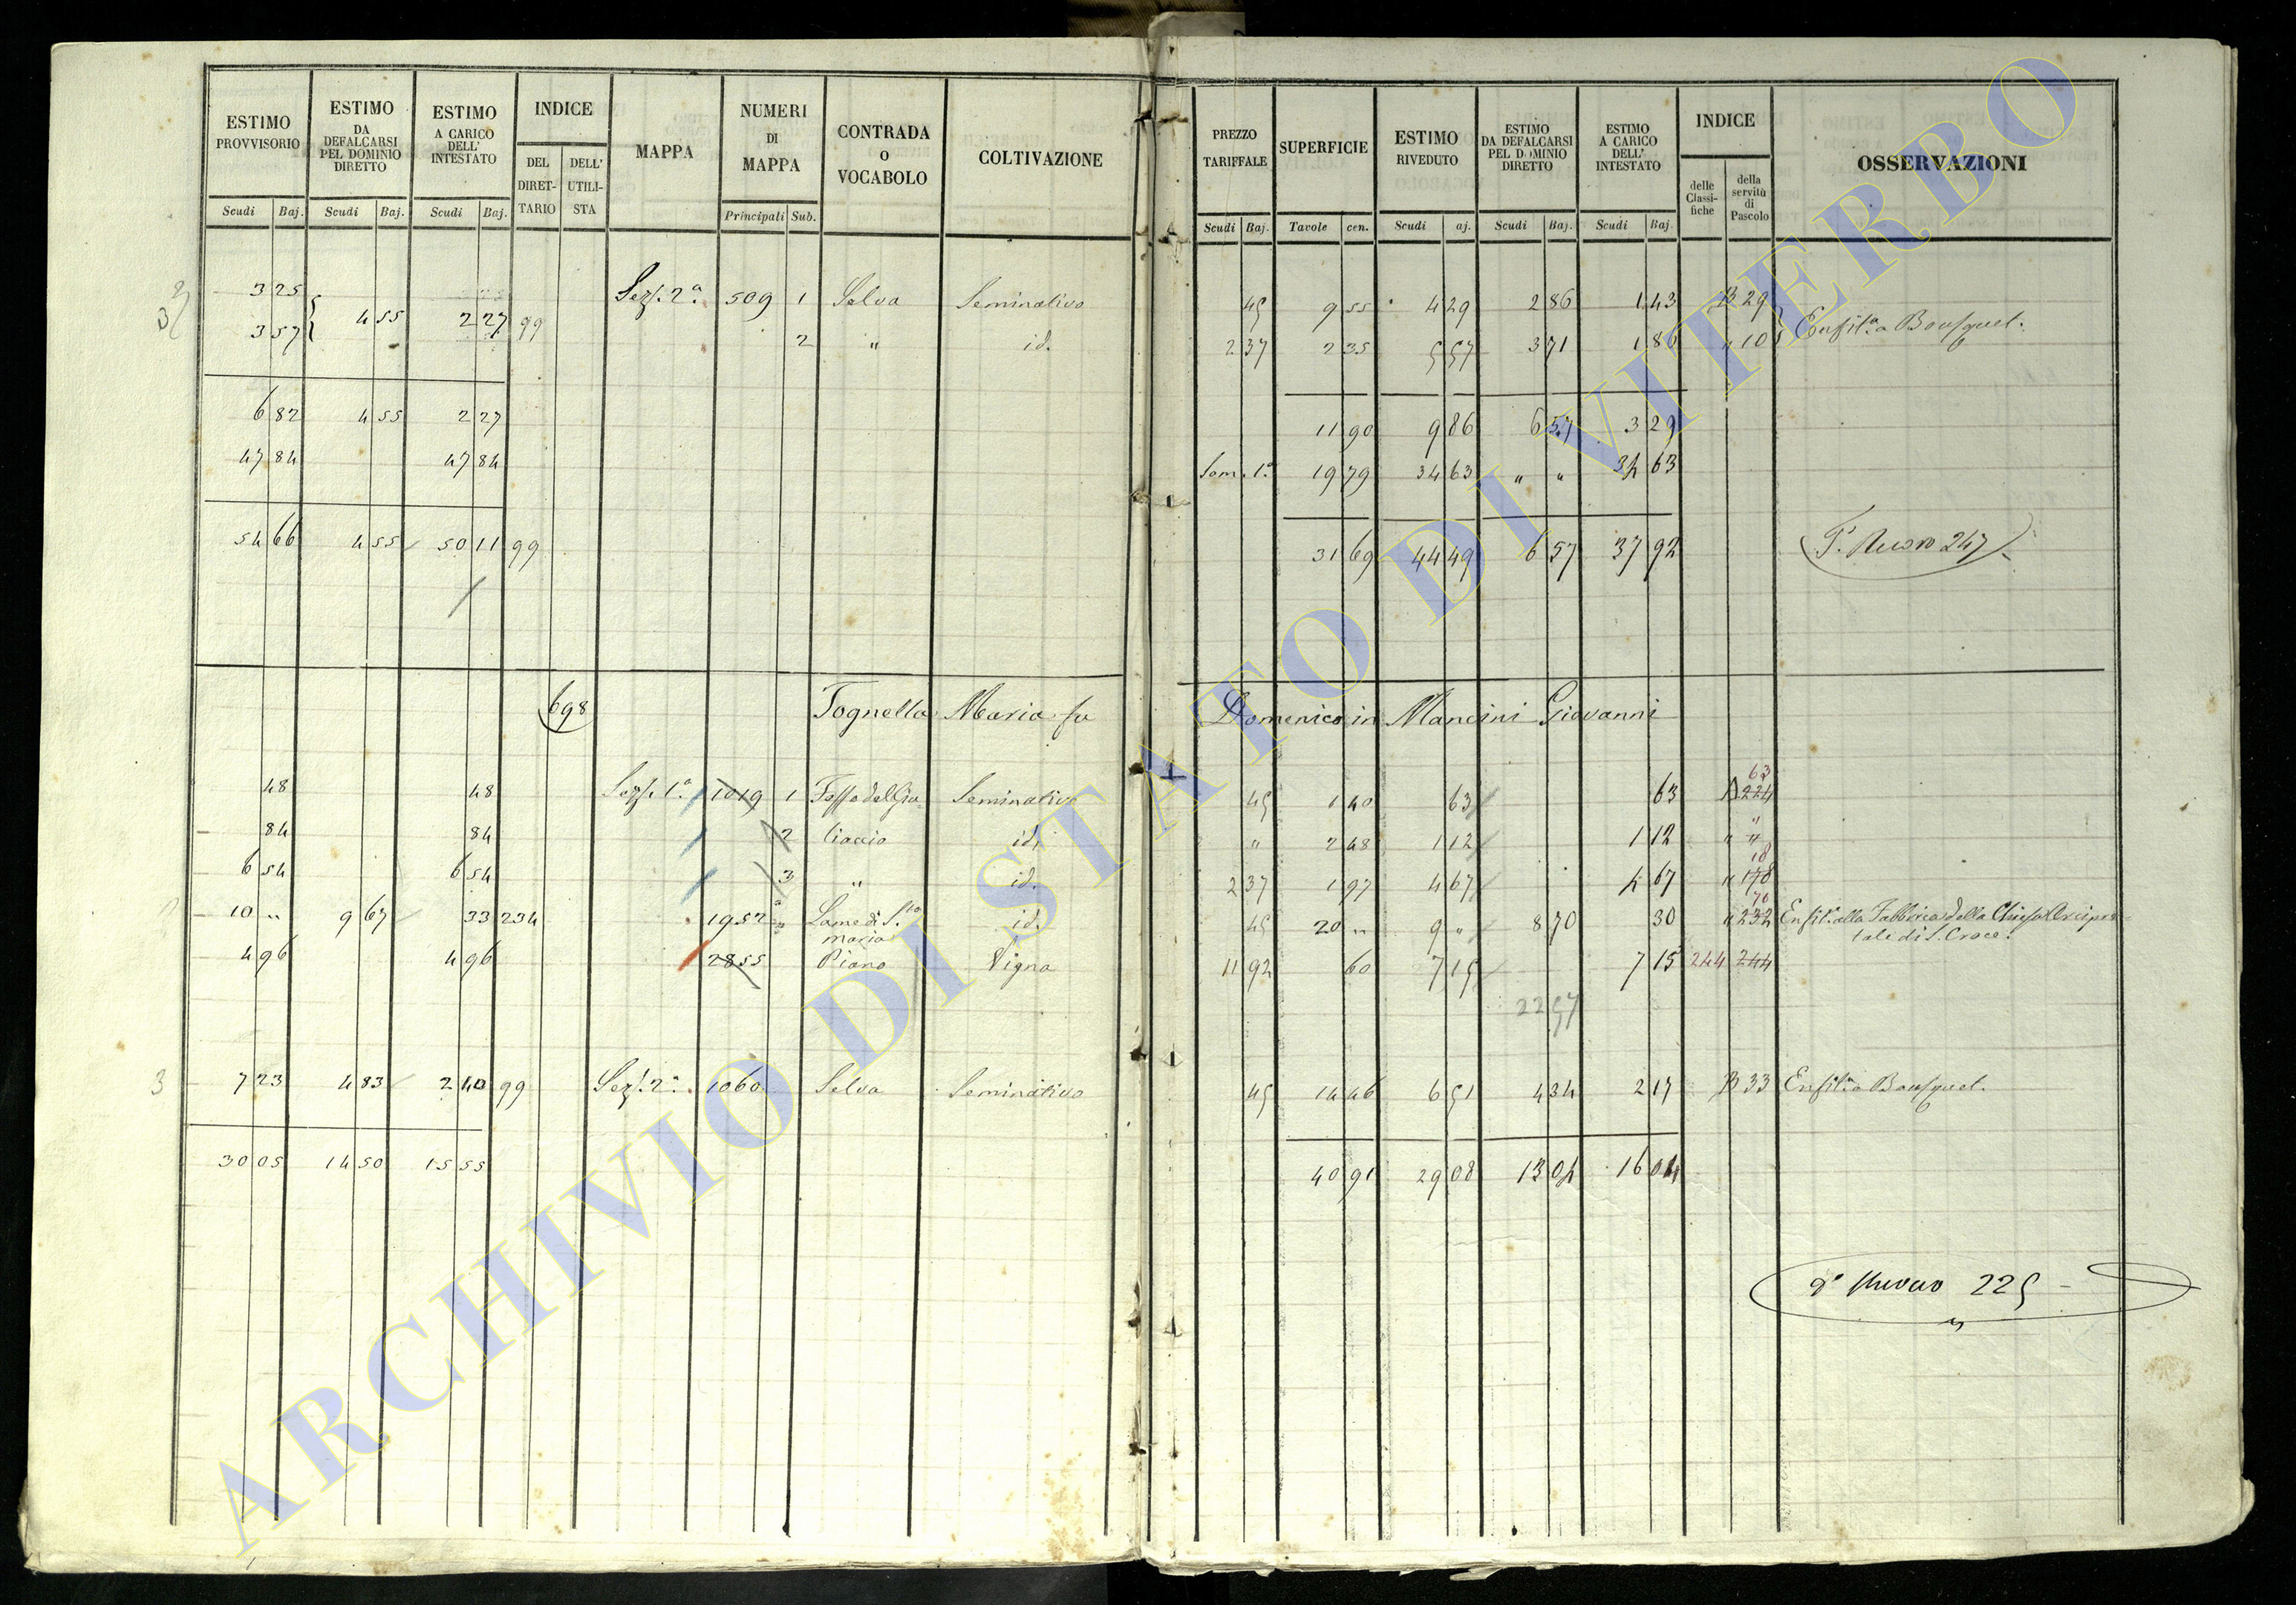 ESTIMO PROVVISORIO | ESTIMO DA DEFALCARSI PEL DOMINIO DIRETTO | ESTIMO A CARICO DELL' INTESTATO | INDICE | MAPPA | NUMERI DI MAPPA | CONTRADA O VOCABOLO | COLTIVAZIONE | PREZZO TARIFFALE | SUPERFICIE | ESTIMO RIVEDUTO | ESTIMO DA DEFALCARSI PEL DOMINIO DIRETTO | ESTIMO A CARICO DELL' INTESTATO | INDICE | OSSERVAZIONI
DEL DIRETTARIO | DELL' UTILISTA | delle Classifiche | della servitù di Pascolo
Scudi | Baj. | Scudi | Baj. | Scudi | Baj. | Principali | Sub. | Scudi | Baj. | Tavole | cen. | Scudi | aj. | Scudi | Baj. | Scudi | Baj.
3 25 | Sez. 2ª | 509 | 1 | Selva | Seminativo | 45 | 9 55 | 4 29 | 2 86 | 1 43 | B 29
3 57 | 4 55 | 2 27 | 99 | 2 | " | id. | 2 37 | 2 35 | 5 57 | 3 71 | 1 86 | " 10 | Enfit.ª a Bousquet.
6 82 | 4 55 | 2 27 | 11 90 | 9 86 | 6 57 | 3 29
47 84 | 47 84 | Som. 1ª | 19 79 | 34 63 | " " | 34 63
54 66 | 4 55 | 50 11 | 99 | 31 69 | 44 49 | 6 57 | 37 92 | Nuovo 247
698 | Tognella Maria fu Domenico in Mancini Giovanni
48 | 48 | Sez. 1ª | 1019 | 1 | Seminativo | 45 | 1 40 | 63 | 63 | A 224 | 63
84 | 84 | 2 | id. | " | 2 48 | 1 12 | 1 12 | " "
6 54 | 6 54 | 3 | " | id. | 2 37 | 1 97 | 4 67 | 4 67 | " 178 | 18
10 " | 9 67 | 33 | 234 | 1952 | Lame di S.ta Maria | id. | 45 | 20 " | 9 " | 8 70 | 30 | " 232 | 70 | Enfit.ª alla Fabbrica della Chiesa Arcipretale di S. Croce.
4 96 | 4 96 | 2855 | Piano | Vigna | 11 92 | 60 | 7 15 | 7 15 | 244 | 244
22 57
3 | 7 23 | 4 83 | 2 40 | 99 | Sez. 2ª | 1060 | Selva | Seminativo | 45 | 14 46 | 6 51 | 4 34 | 2 17 | B 33 | Enfit.ª a Bousquet.
30 05 | 14 50 | 15 55 | 40 91 | 29 08 | 13 04 | 16 04
Nuovo 225
ARCHIVIO DI STATO DI VITERBO